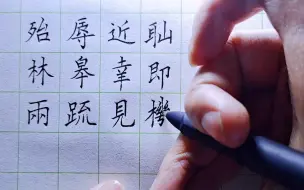 殆辱近耻
林皋幸即
兩疏見機